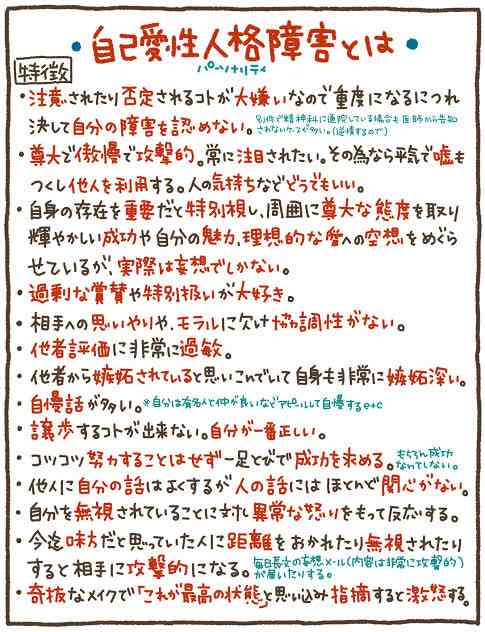 ・自己愛性人格障害とは・
パーソナリティ
特徴
・注意されたり否定されるコトが大嫌いなので重度になるにつれ
決して自分の障害を認めない。
別件で精神科に通院している場合も医師から告知
されないケースが多い。(逆情するので)
・尊大で傲慢で攻撃的。常に注目されたい。その為なら平気で嘘も
つくし他人を利用する。人の気持ちなどどうでもいい。
・自身の存在を重要だと特別視し、周囲に尊大な態度を取り
輝やかしい成功や自分の魅力、理想的な愛への空想をめぐら
せているが、実際は妄想でしかない。
・過剰な賞賛や特別扱いが大好き。
・相手への思いやりや、モラルに欠け協調性がない。
・他者評価に非常に過敏。
・他者から嫉妬されていると思いこんでいて自身も非常に嫉妬深い。
・自慢話が多い。※自分は有名人と仲が良いなどアピールして自慢するetc
・譲歩するコトが出来ない。自分が一番正しい。
・コツコツ努力することはせず一足とびで成功を求める。もちろん成功
なんてしない。
・他人に自分の話はよくするが人の話にはほとんど関心がない。
・自分を無視されていることに対し異常な怒りをもって反応する。
・今迄味方だと思っていた人に距離をおかれたり無視されたり
すると相手に攻撃的になる。毎日長文の妄想メール(内容は非常に攻撃的)
が届いたりする。
・奇抜なメイクで「これが最高の状態」と思い込み指摘すると激怒する。